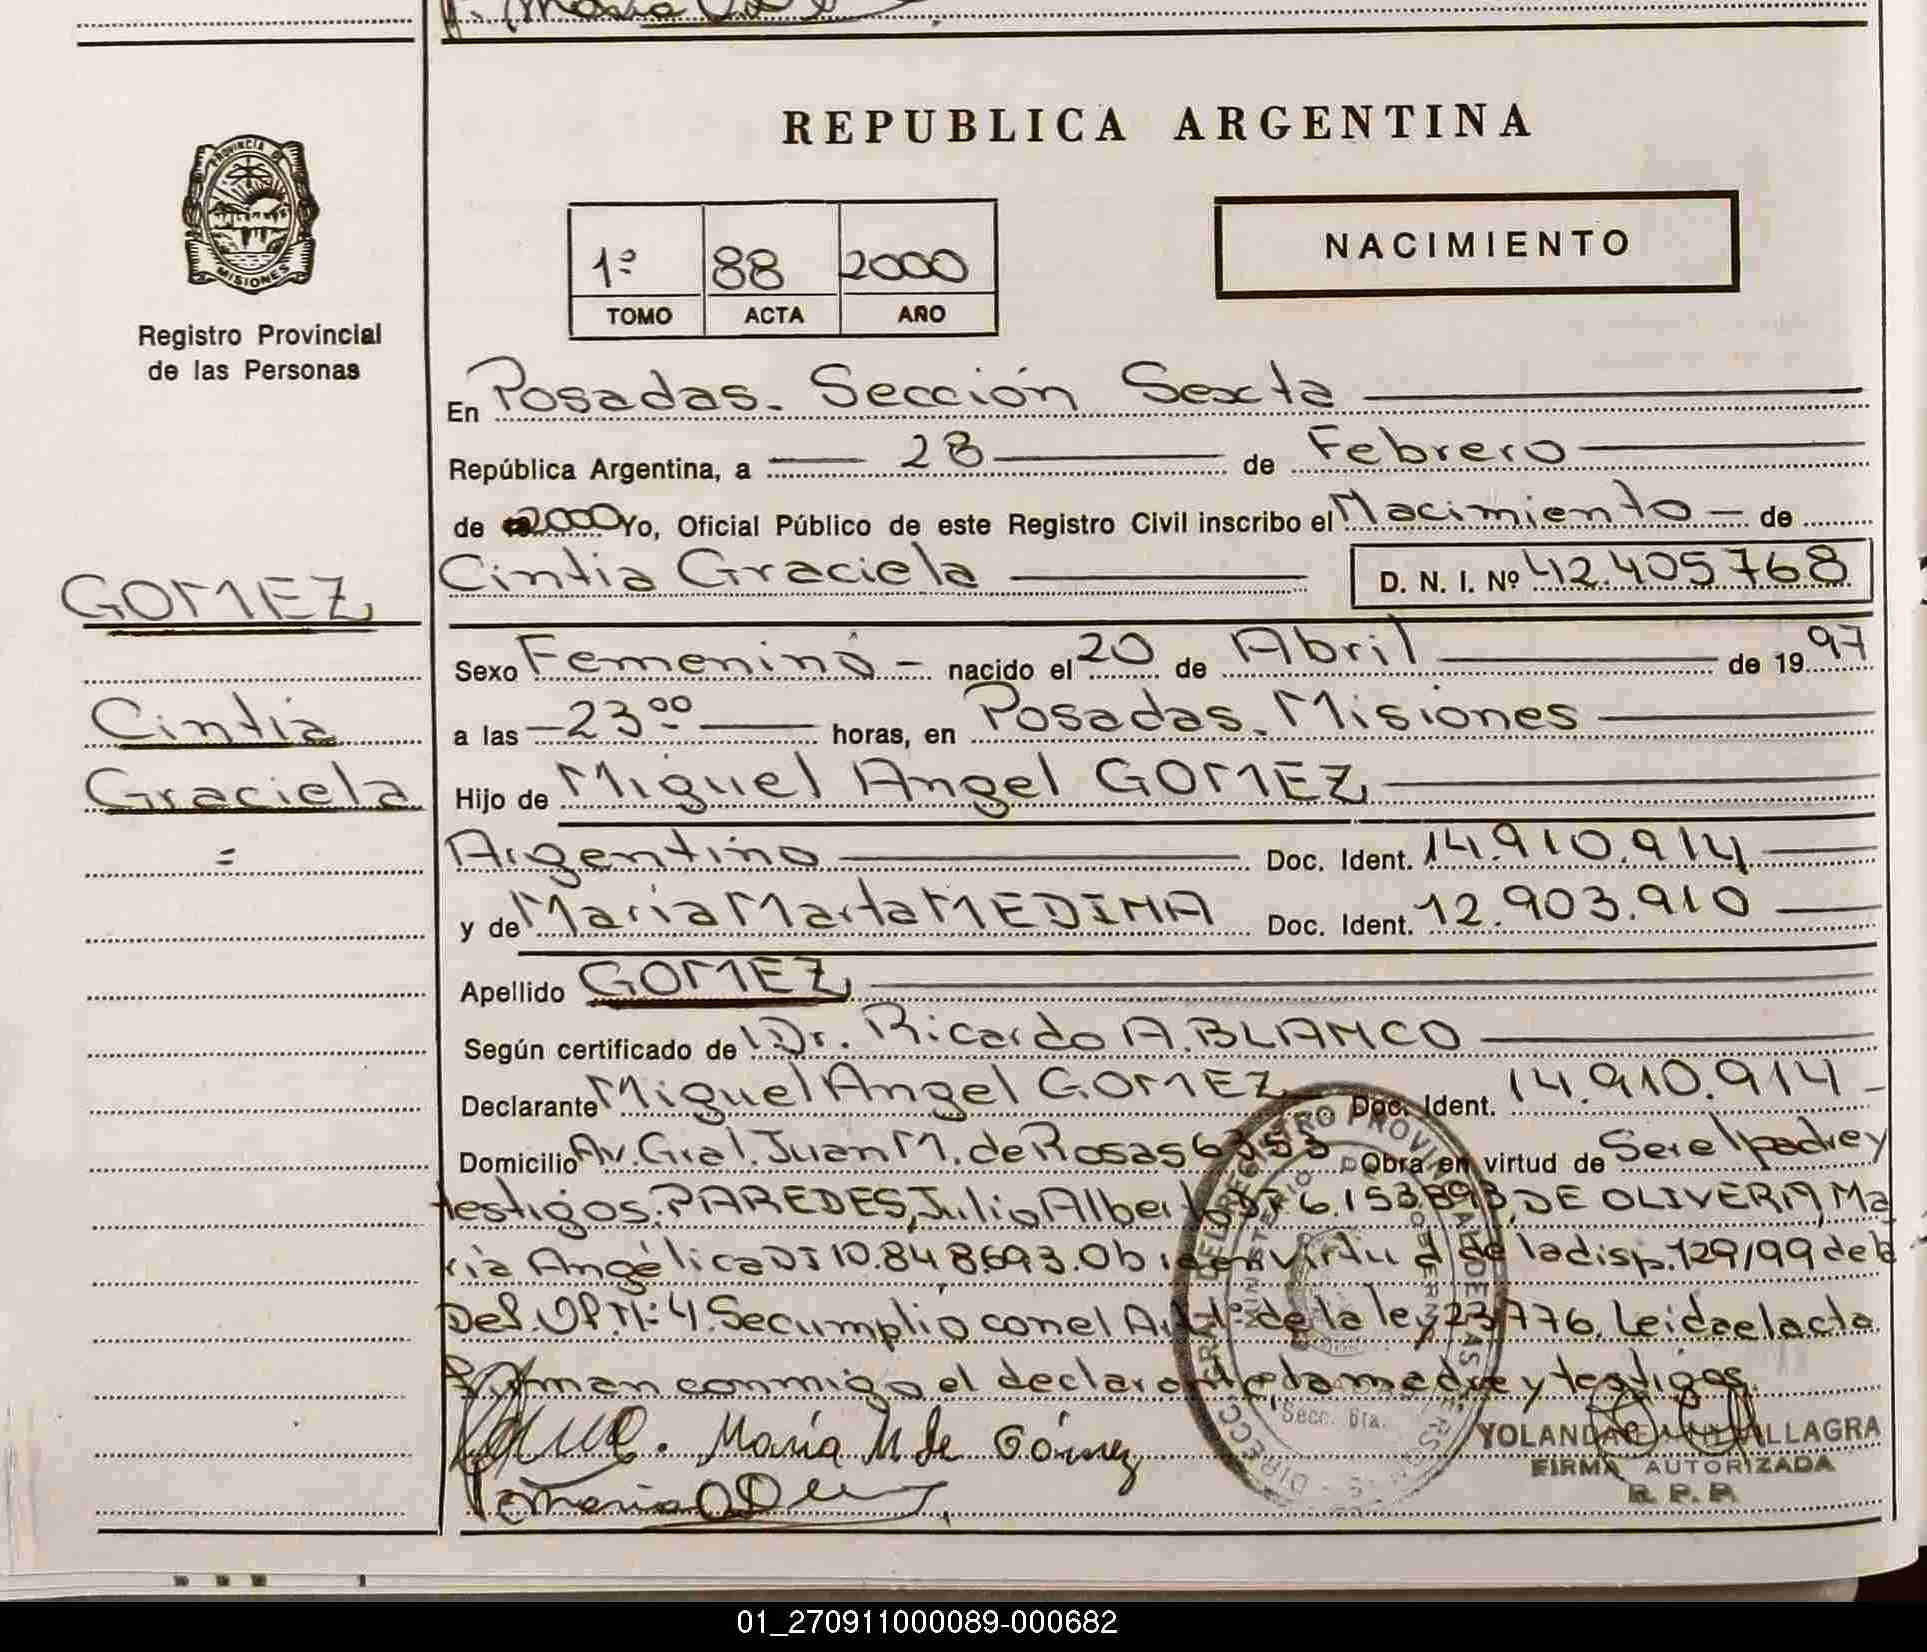 REPUBLICA ARGENTINA
PROVINCIA DE
MISIONES
Registro Provincial
de las Personas
1º 88 2000
TOMO ACTA AÑO
NACIMIENTO
En Posadas. Sección Sexta
República Argentina, a 28 de Febrero
de 2000 Yo, Oficial Público de este Registro Civil inscribo el Nacimiento de
GOMEZ
Cintia Graciela D. N. I. Nº 42.405768
Sexo Femenino nacido el 20 de Abril de 1997
Cintia
a las 23⁰⁰ horas, en Posadas. Misiones
Graciela
Hijo de Miguel Angel GOMEZ
=
Argentino Doc. Ident. 14.910.914
y de Maria Marta MEDINA Doc. Ident. 12.903.910
Apellido GOMEZ
Según certificado de Dr. Ricardo A. BLANCO
Declarante Miguel Angel GOMEZ Doc. Ident. 14.910.914
Domicilio Av. Gral. Juan M. de Rosas 6353 Obra en virtud de Ser el padre y
testigos: PAREDES, Julio Alberto 6.153.893, DE OLIVERA, Ma
ria Angélica DI 10.848693. Obra en virtud de la disp. 129/99 de la
Del. Of. N: 4. Se cumplió con el Art. de la ley 23776. Leida el acta
Firman conmigo el declarante, la madre y testigos.
Secc. 6ta.
Maria M de Gómez
YOLANDA VILLAGRA
FIRMA AUTORIZADA
R. P. P.
01_270911000089-000682